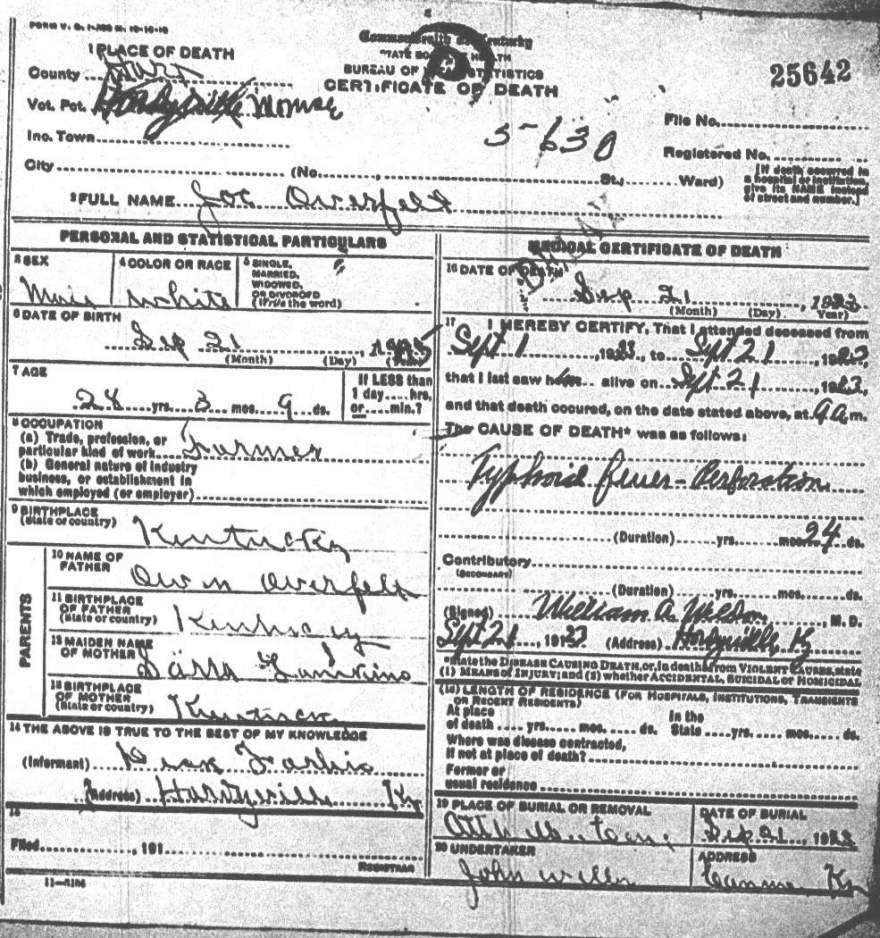 FORM V. S.
1 PLACE OF DEATH
County Hart
Vot. Pct. Hardyville Monroe
Inc. Town
City (No. , St., Ward)
Commonwealth of Kentucky
STATE BOARD OF HEALTH
BUREAU OF VITAL STATISTICS
CERTIFICATE OF DEATH
25642
5-630
File No.
Registered No.
[If death occurred in
a hospital or institution,
give its NAME instead
of street and number.]
2 FULL NAME Joe Overfelt
PERSONAL AND STATISTICAL PARTICULARS
3 SEX
4 COLOR OR RACE
5 SINGLE,
MARRIED,
WIDOWED,
OR DIVORCED
(Write the word)
white
6 DATE OF BIRTH
Sep 21
(Month) (Day) (Year)
7 AGE
28 yrs. 3 mos. 9 ds.
If LESS than
1 day ... hrs,
or ... min.?
8 OCCUPATION
(a) Trade, profession, or
particular kind of work Farmer
(b) General nature of industry
business, or establishment in
which employed (or employer)
9 BIRTHPLACE
(State or country) Kentucky
PARENTS
10 NAME OF
FATHER Owen Overfelt
11 BIRTHPLACE
OF FATHER
(State or country) Kentucky
12 MAIDEN NAME
OF MOTHER
13 BIRTHPLACE
OF MOTHER
(State or country) Kentucky
14 THE ABOVE IS TRUE TO THE BEST OF MY KNOWLEDGE
(Informant)
(Address) Hardyville Ky
15
Filed , 191
REGISTRAR
MEDICAL CERTIFICATE OF DEATH
16 DATE OF DEATH
Sep 21, 1923
(Month) (Day) Year)
17 I HEREBY CERTIFY, That I attended deceased from
Sept 1, 1923, to Sept 21, 1923,
that I last saw him alive on Sept 21, 1923,
and that death occured, on the date stated above, at 9 a m.
The CAUSE OF DEATH* was as follows:
Typhoid fever - Perforation
(Duration) yrs. mos. 24 ds.
Contributory
(SECONDARY)
(Duration) yrs. mos. ds.
(Signed) William A. , M. D.
Sept 21, 1923 (Address) Hardyville, Ky
*State the DISEASE CAUSING DEATH, or, in deaths from VIOLENT CAUSES, state
(1) MEANS OF INJURY; and (2) whether ACCIDENTAL, SUICIDAL or HOMICIDAL
(18) LENGTH OF RESIDENCE (FOR HOSPITALS, INSTITUTIONS, TRANSIENTS
OR RECENT RESIDENTS)
At place
of death yrs. mos. ds.
In the
State yrs. mos. ds.
Where was disease contracted,
if not at place of death?
Former or
usual residence
19 PLACE OF BURIAL OR REMOVAL
DATE OF BURIAL
Sep 21, 1923
20 UNDERTAKER
John
ADDRESS
Canmer Ky